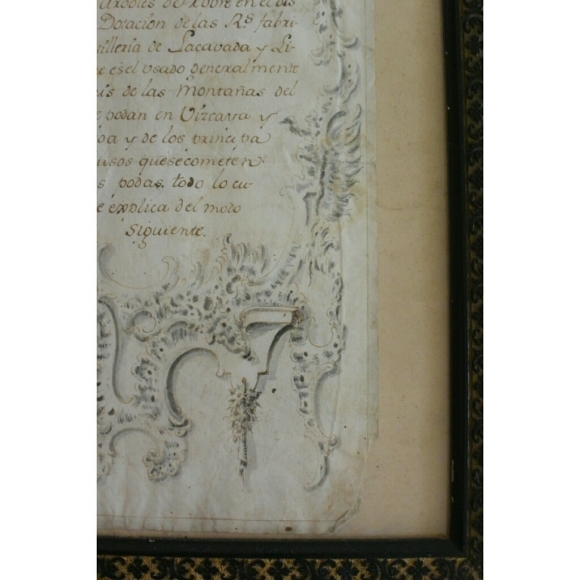 Arboles de Robre en el dis
Dotacion de las Rs. fabri
tilleria de Lacavada y Li
e es el usado generalmente
is de las Montañas del
e podan en Vizcaya y
oa y de los principa
usos que se cometen
s podas, todo lo cu
e explica del modo
siguiente.